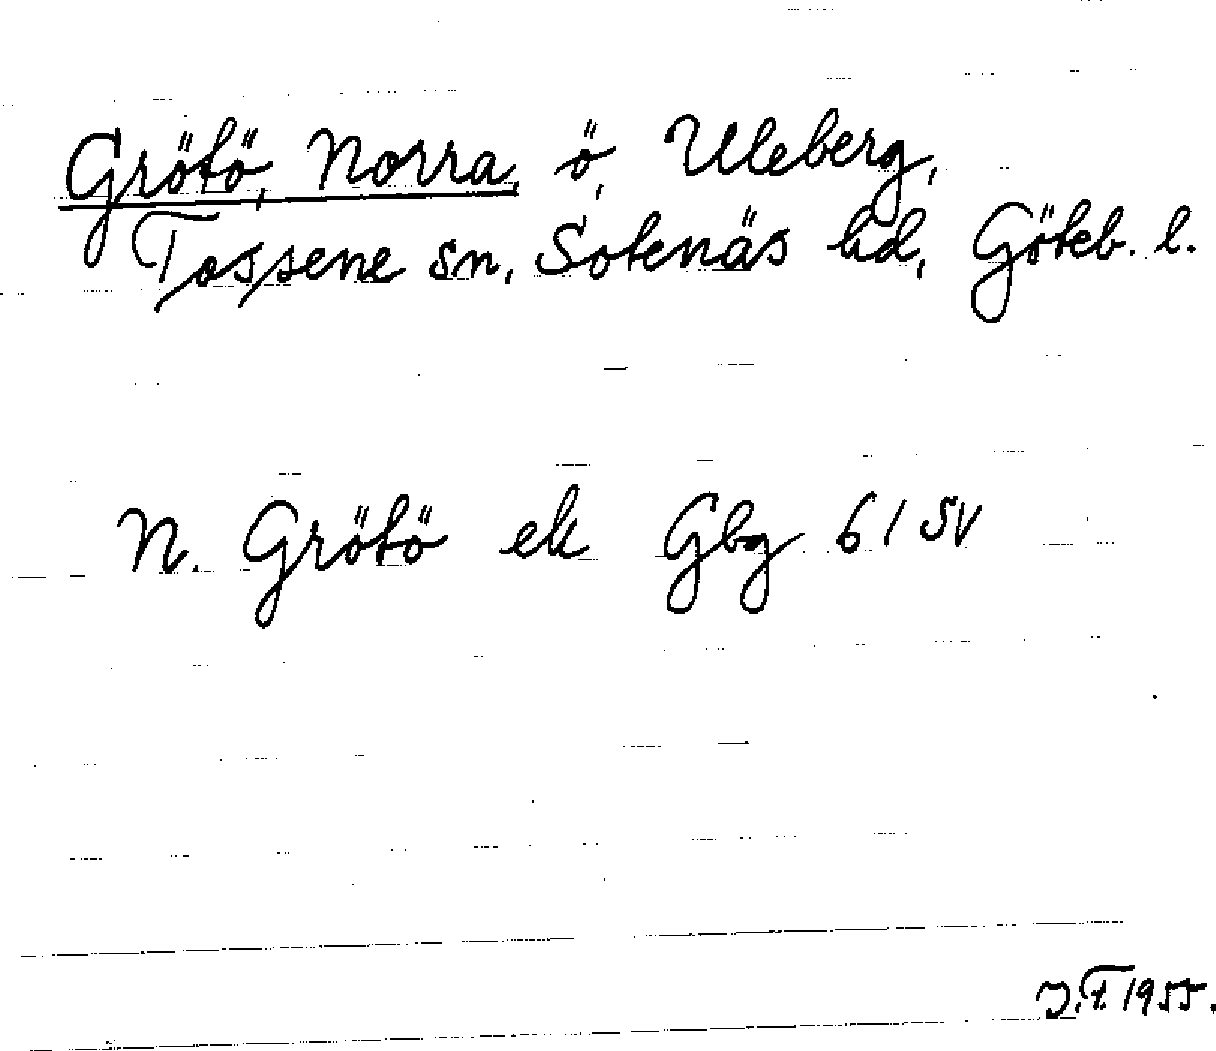 Grötö, Norra, ö, Uleberg,
Tossene sn, Sotenäs hd, Göteb. l.
N. Grötö ek Gbg 61 SV
J.F. 1955.